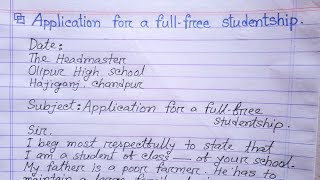 Application for a full-free studentship.
Date:
The Headmaster
Olipur High school
Hajiganj. chandpur
Subject: Application for a full-free
studentship.
Sir.
I beg most respectfully to state that
I am a student of class — of your school.
My father is a poor farmer. He has to
maintain a large family